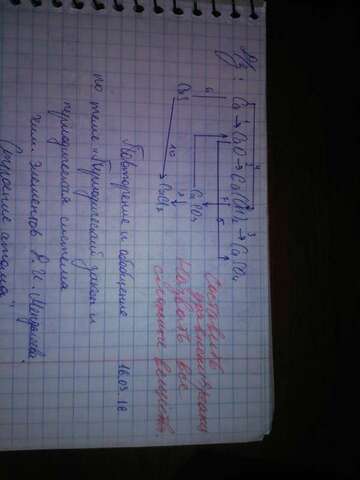 Д/з: Ca →¹ CaO →² Ca(OH)₂ →³ CaSO₄
4
5
6
CaS CaCO₃
10
CaCl₂
Составить уравнения реакции
Назвать все
сложные вещества.
Повторение и обобщение 16.03.18
по теме „Периодический закон и
периодическая система
хим. элементов Д.И. Менделеева.
Строение атома"